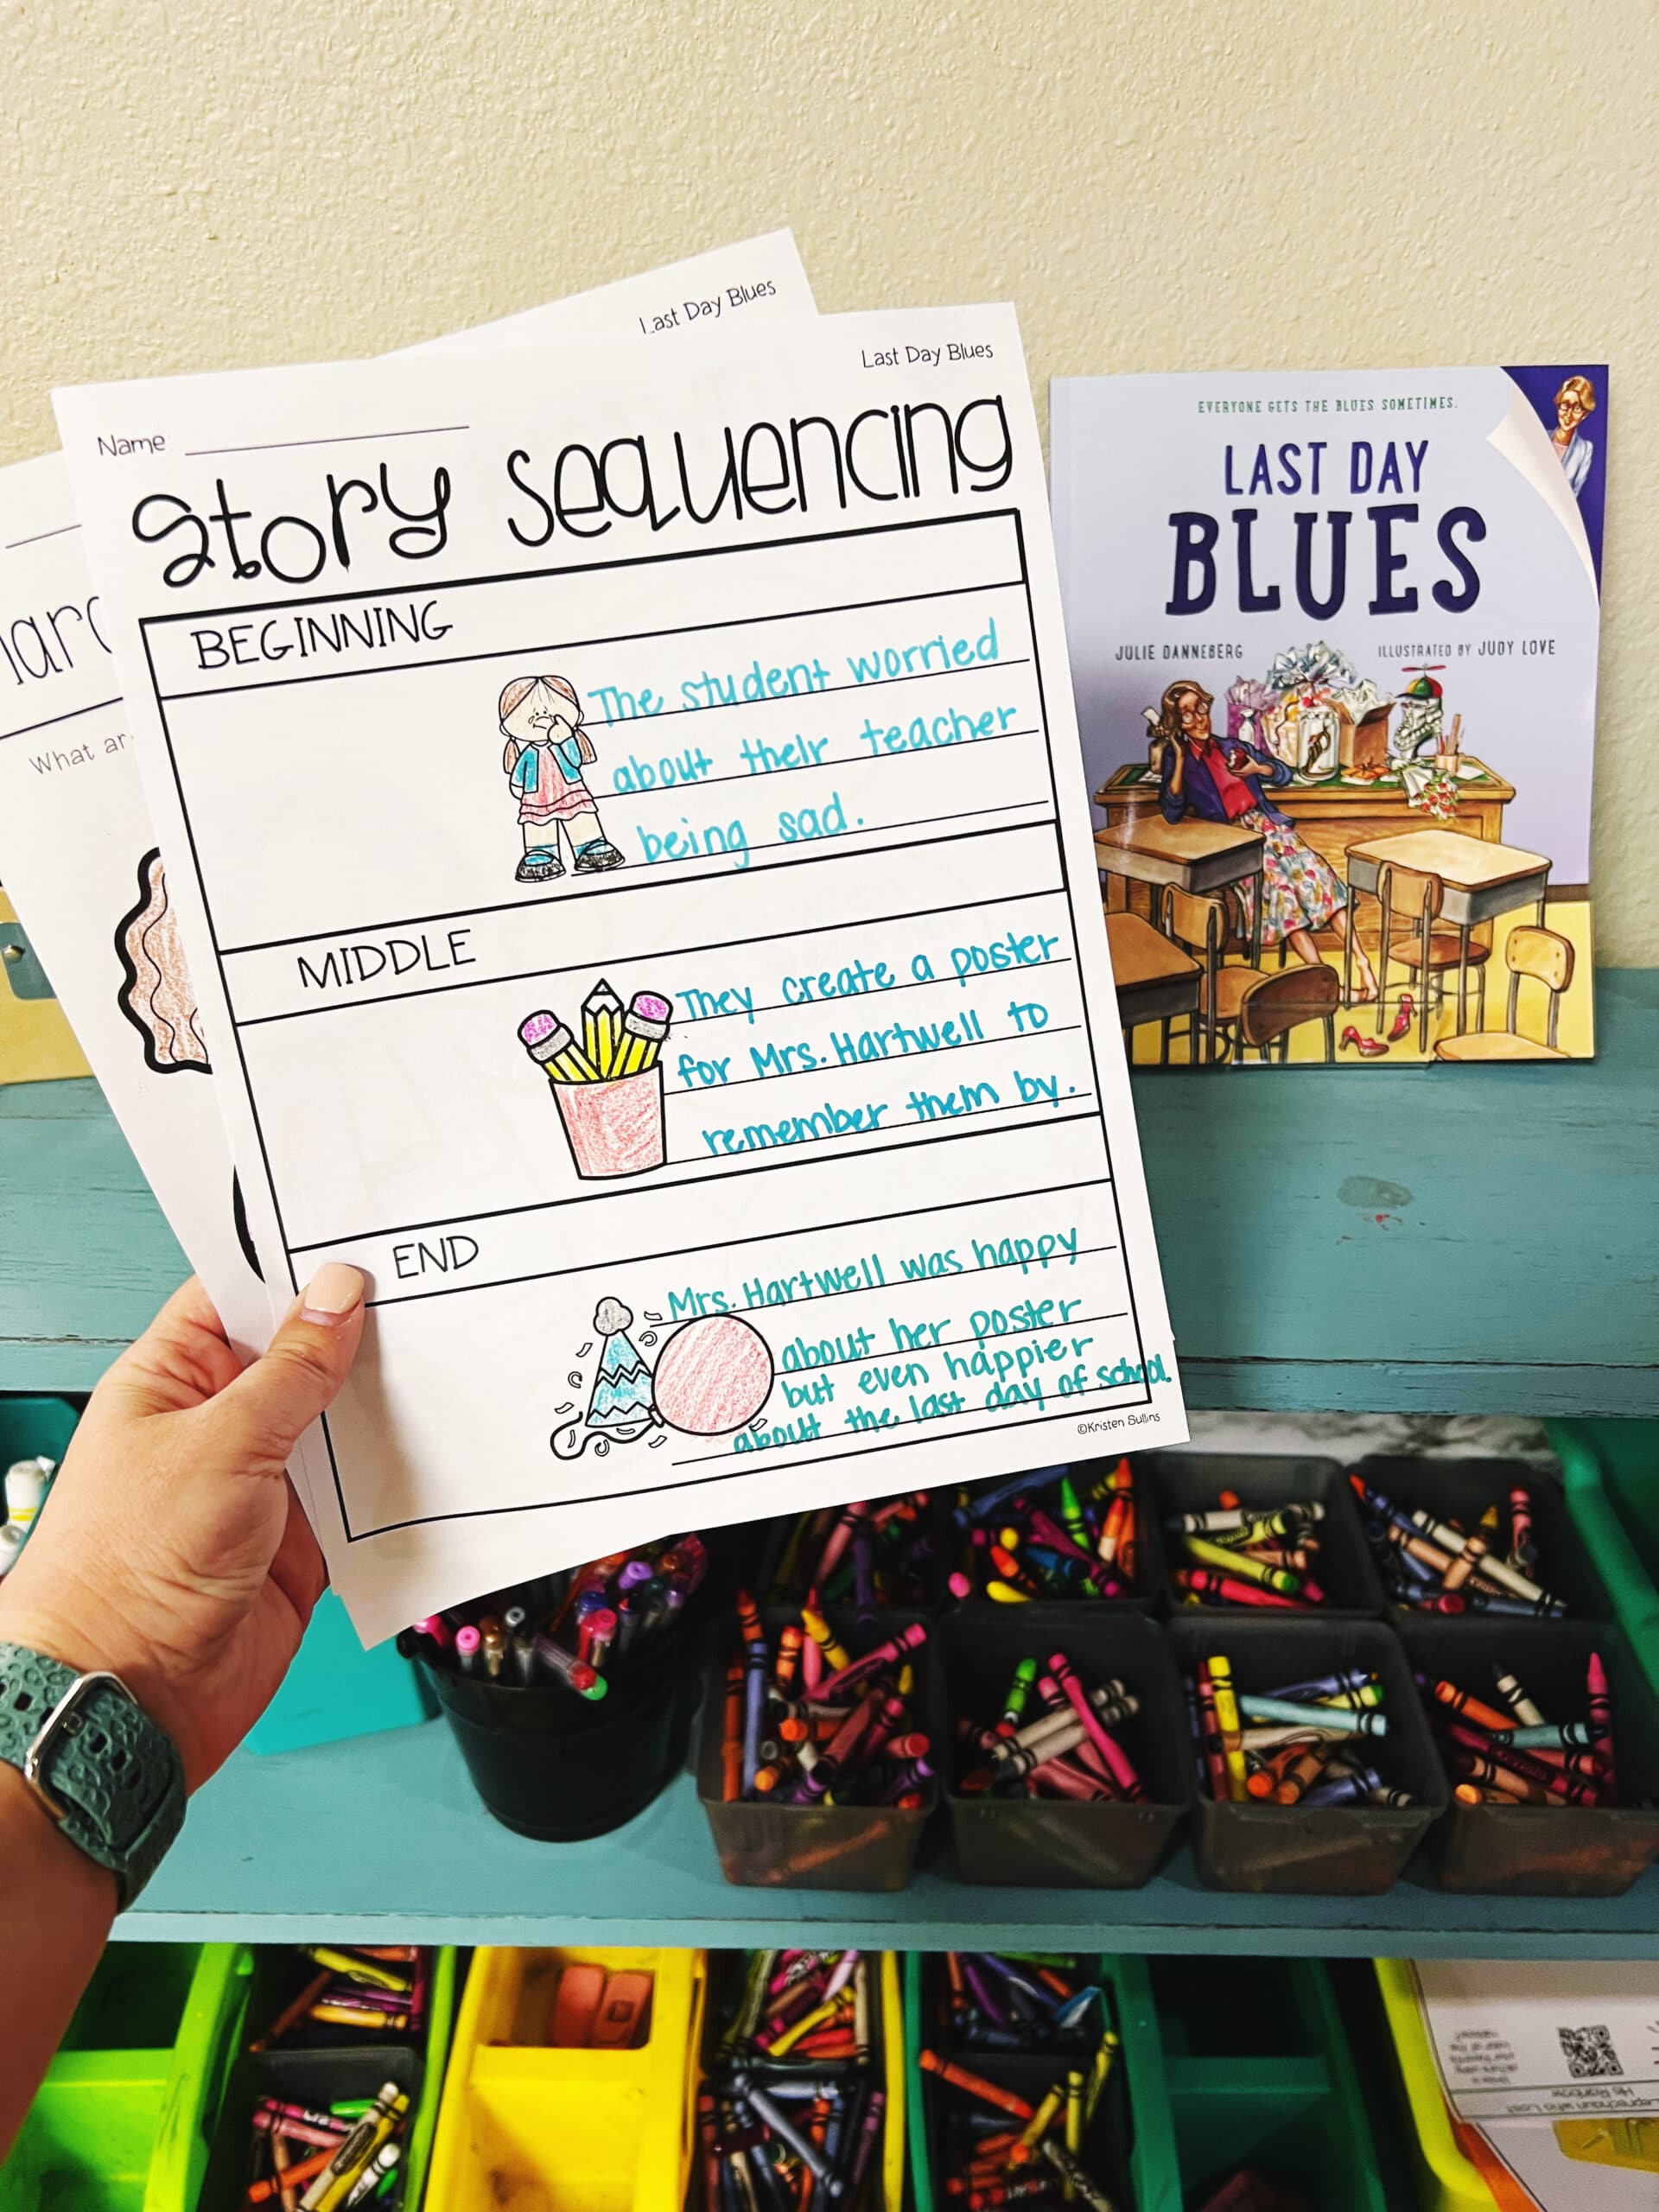 Last Day Blues
Last Day Blues
Name
Story Sequencing
BEGINNING
The student worried
about their teacher
being sad.
MIDDLE
They create a poster
for Mrs. Hartwell to
remember them by.
END
Mrs. Hartwell was happy
about her poster
but even happier
about the last day of school.
©Kristen Sullins
What
EVERYONE GETS THE BLUES SOMETIMES.
LAST DAY
BLUES
JULIE DANNEBERG
ILLUSTRATED BY JUDY LOVE